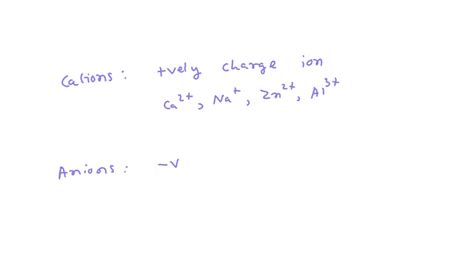 Cations: +vely charge ion
Ca²⁺, Na⁺, Zn²⁺, Al³⁺
Anions: -v